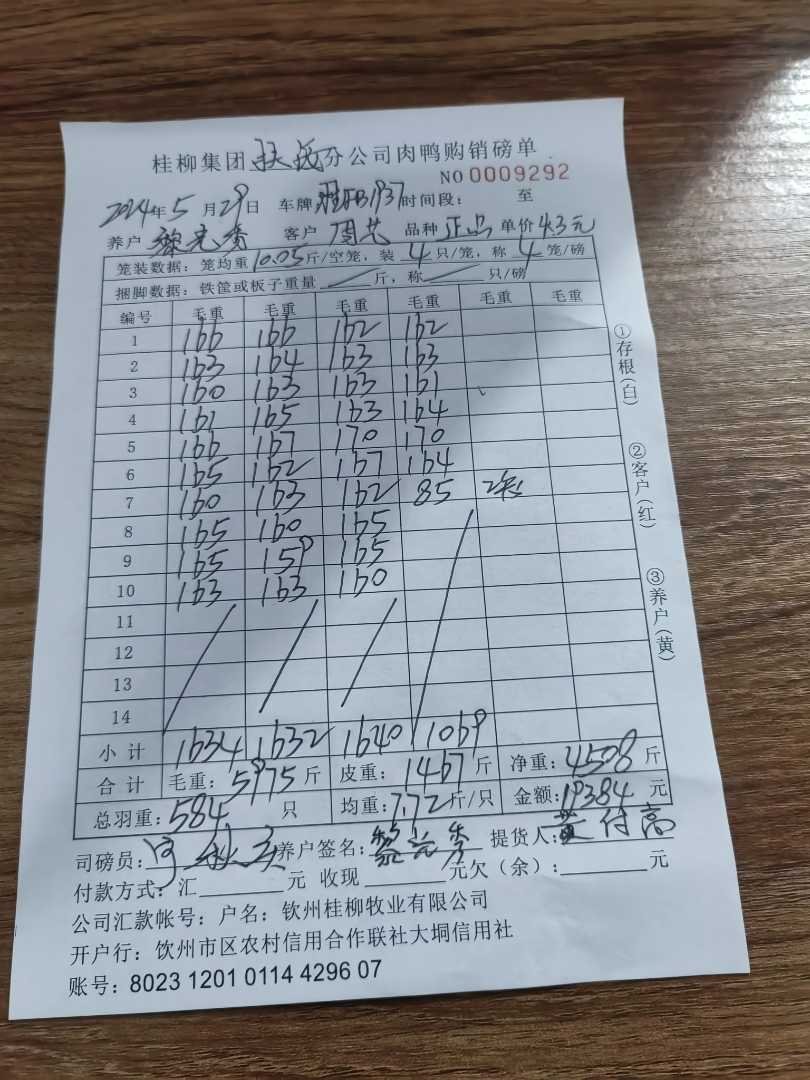 桂柳集团扶绥分公司肉鸭购销磅单
NO 0009292
2024年5月29日 车牌 FB1937 时间段: 至
养户 客户 周芯 品种 正品 单价 4.3元
笼装数据: 笼均重 10.05 斤/空笼, 装 4 只/笼, 称 4 笼/磅
捆脚数据: 铁筐或板子重量 / 斤, 称 / 只/磅
编号 毛重 毛重 毛重 毛重 毛重 毛重
1 166 166 162 162
2 163 164 163 163
3 160 163 163 161
4 161 165 163 164
5 166 167 170 170
6 165 162 167 164
7 160 163 162 85
8 165 160 165
9 165 159 165
10 163 163 160
11
12
13
14
小计 1634 1632 1640 1069
合计 毛重: 5975 斤 皮重: 1467 斤 净重: 4508 斤
总羽重: 584 只 均重: 7.72 斤/只 金额: 19384 元
司磅员: 养户签名: 提货人: 黄付高
付款方式: 汇 元 收现 元欠(余): 元
公司汇款帐号: 户名: 钦州桂柳牧业有限公司
开户行: 钦州市区农村信用合作联社大垌信用社
账号: 8023 1201 0114 4296 07
①存根(白)
②客户(红)
③养户(黄)